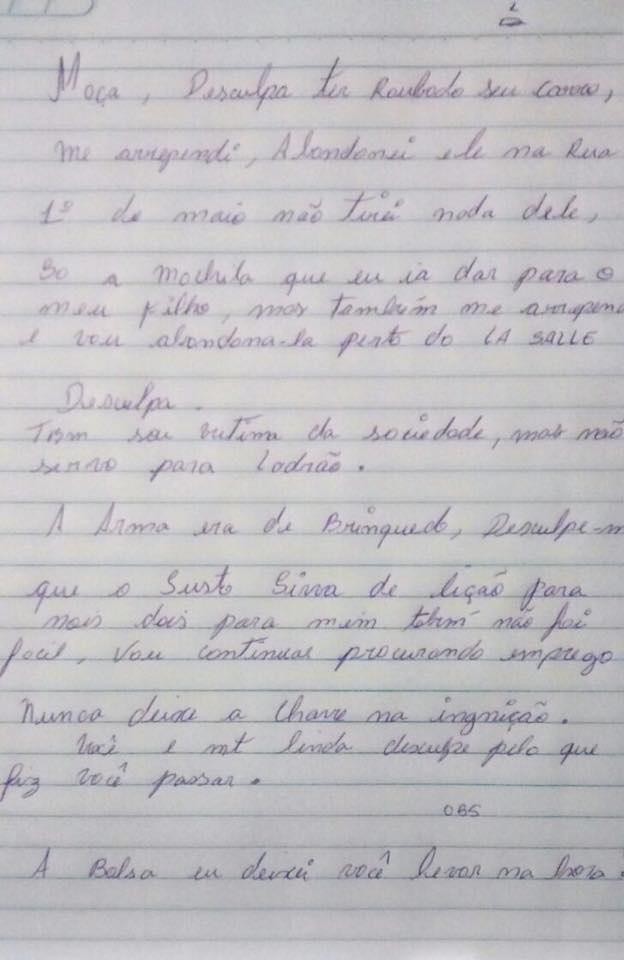 Moça, Desculpa ter Roubado seu carro,
me arrependi, Abandonei ele na Rua
1º de maio não tirei nada dele,
so a mochila que eu ia dar para o
meu filho, mas também me arrepend
e vou abandona-la perto do LA SALLE
Desculpa.
TBm sou vitima da sociedade, mas não
sirvo para ladrão.
A Arma era de Brinquedo, Desculpe-m
que o Susto Sirva de lição para
nois dois para mim tbm não foi
facil, Vou continuar procurando emprego
Nunca deixe a Chave na ingnição.
Você e mt linda desculpe pelo que
fiz você passar.
OBS
A Bolsa eu deixei você levar na hora.